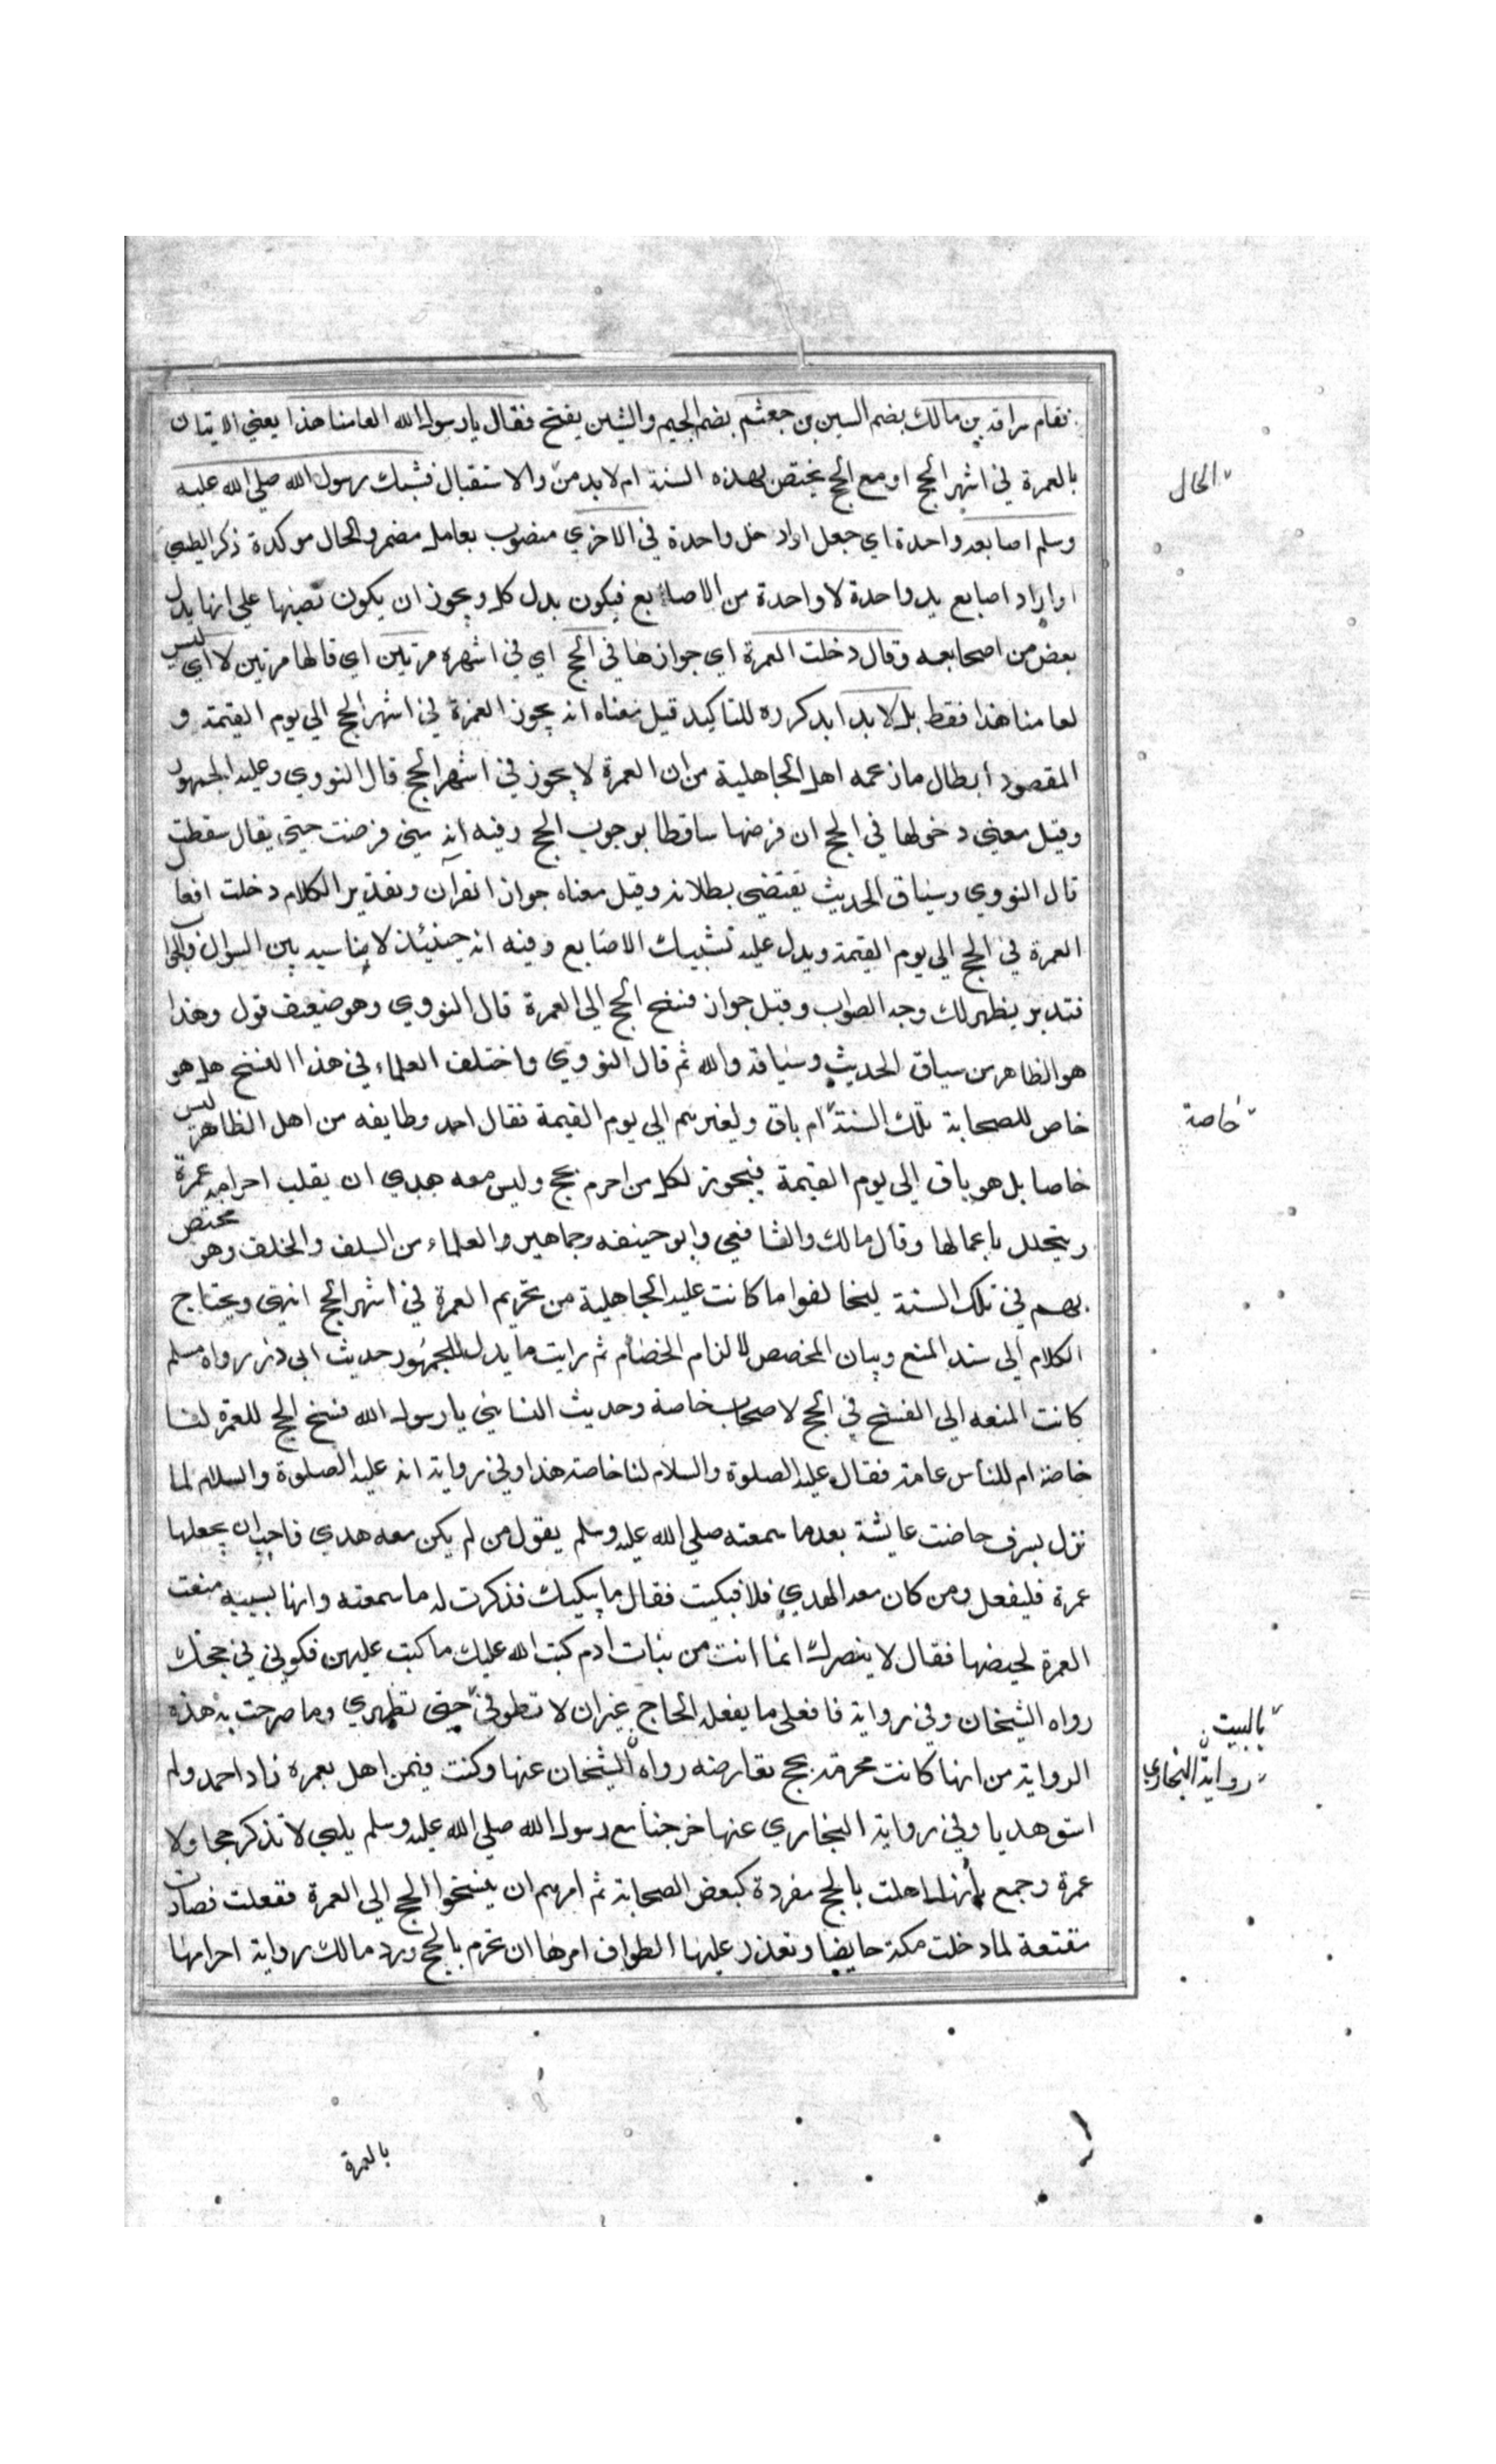 فقام سراقة بن مالك بضم السين بن جعثم بضم الجيم والشين يفتح فقال يا رسول الله العامنا هذا يعني الاتيان
بالعمرة في اشهر الحج او مع الحج يختص بهذه السنة ام لابد من والاستقبال فشبك رسول الله صلي الله عليه
الحال
وسلم اصابعه واحدة اي جعل او ادخل واحدة في الاخري منصوب بعامل مضمر والحال موكدة ذكر الطيبي
او اراد اصابع يد واحدة لا واحدة من الاصابع فيكون بدل كل ويجوز ان يكون نصبها علي انها بدل
بعض من اصابعه وقال دخلت العمرة اي جوازها في الحج اي في اشهره مرتين اي قالها مرتين لا اي ليس
لعامنا هذا فقط بل لابد ابد كرره للتاكيد قيل معناه انه يجوز العمرة في اشهر الحج الي يوم القيمة و
المقصود ابطال ما زعمه اهل الجاهلية من ان العمرة لا يجوز في اشهر الحج قال النووي وعليه الجمهور
وقيل معني دخولها في الحج ان فرضها ساقط بوجوب الحج وفيه انه متي فرضت حتي يقال سقطت
قال النووي وسياق الحديث يقتضي بطلانه وقيل معناه جواز القران وتقدير الكلام دخلت افعا
العمرة في الحج الي يوم القيمة ويدل عليه تشبيك الاصابع وفيه انه حينئذ لا مناسبه بين السوال والجواب
فتدبر يظهر لك وجه الصواب وقيل جواز فسخ الحج الي العمرة قال النووي وهو ضعيف قول وهذا
هو الظاهر من سياق الحديث وسباقه والله ثم قال النووي واختلف العلماء في هذا الفسخ هل هو
خاص للصحابة تلك السنة ام باق ولغيرهم الي يوم القيمة فقال احمد وطايفه من اهل الظاهر ليس
خاصة
خاصا بل هو باق الي يوم القيمة فيجوز لكل من احرم بحج وليس معه هدي ان يقلب احرامه عمرة
ويتحلل باعمالها وقال مالك والشافعي وابو حنيفه وجماهير والعلماء من السلف والخلف وهو مختص
بهم في تلك السنة ليخالفوا ما كانت عليه الجاهلية من تحريم العمرة في اشهر الحج انتهي ويحتاج
الكلام الي سند المنع وبيان المخصص لالزام الخصام ثم رايت ما يدل للجمهور حديث ابي ذر رواه مسلم
كانت المتعه الي الفسخ في الحج لاصحاب خاصة وحديث النسائي يا رسول الله فسخ الحج للعمرة لنا
خاصة ام للناس عامة فقال عليه الصلوة والسلام لنا خاصة هذا وفي رواية انه عليه الصلوة والسلام لما
نزل بسرف حاضت عايشة بعد ما سمعته صلي الله عليه وسلم يقول من لم يكن معه هدي فاحب ان يجعلها
عمرة فليفعل ومن كان معه الهدي فلا فبكيت فقال ما يبكيك فذكرت له ما سمعته وانها بسببه منعت
العمرة لحيضها فقال لا يضرك انما انت من بنات ادم كتب الله عليك ما كتب عليهن فكوني في حجك
رواه الشيخان وفي رواية فافعلي ما يفعله الحاج غير ان لا تطوفي حتي تطهري وما صرحت به هذه
بالبيت
الرواية من انها كانت محرمة بحج تعارضه رواه الشيخان عنها وكنت فيمن اهل بعمرة زاد احمد ولم
رواية البخاري
استق هديا وفي رواية البخاري عنها خرجنا مع رسول الله صلي الله عليه وسلم يلبي لا نذكر حجا ولا
عمرة وجمع بأنها اهلت بالحج مفردة كبعض الصحابة ثم امرهم ان يفسخوا الحج الي العمرة ففعلت فصارت
متمتعة لما دخلت مكة حايضا وتعذر عليها الطواف امرها ان تحرم بالحج ورد مالك رواية احرامها
بالعمرة